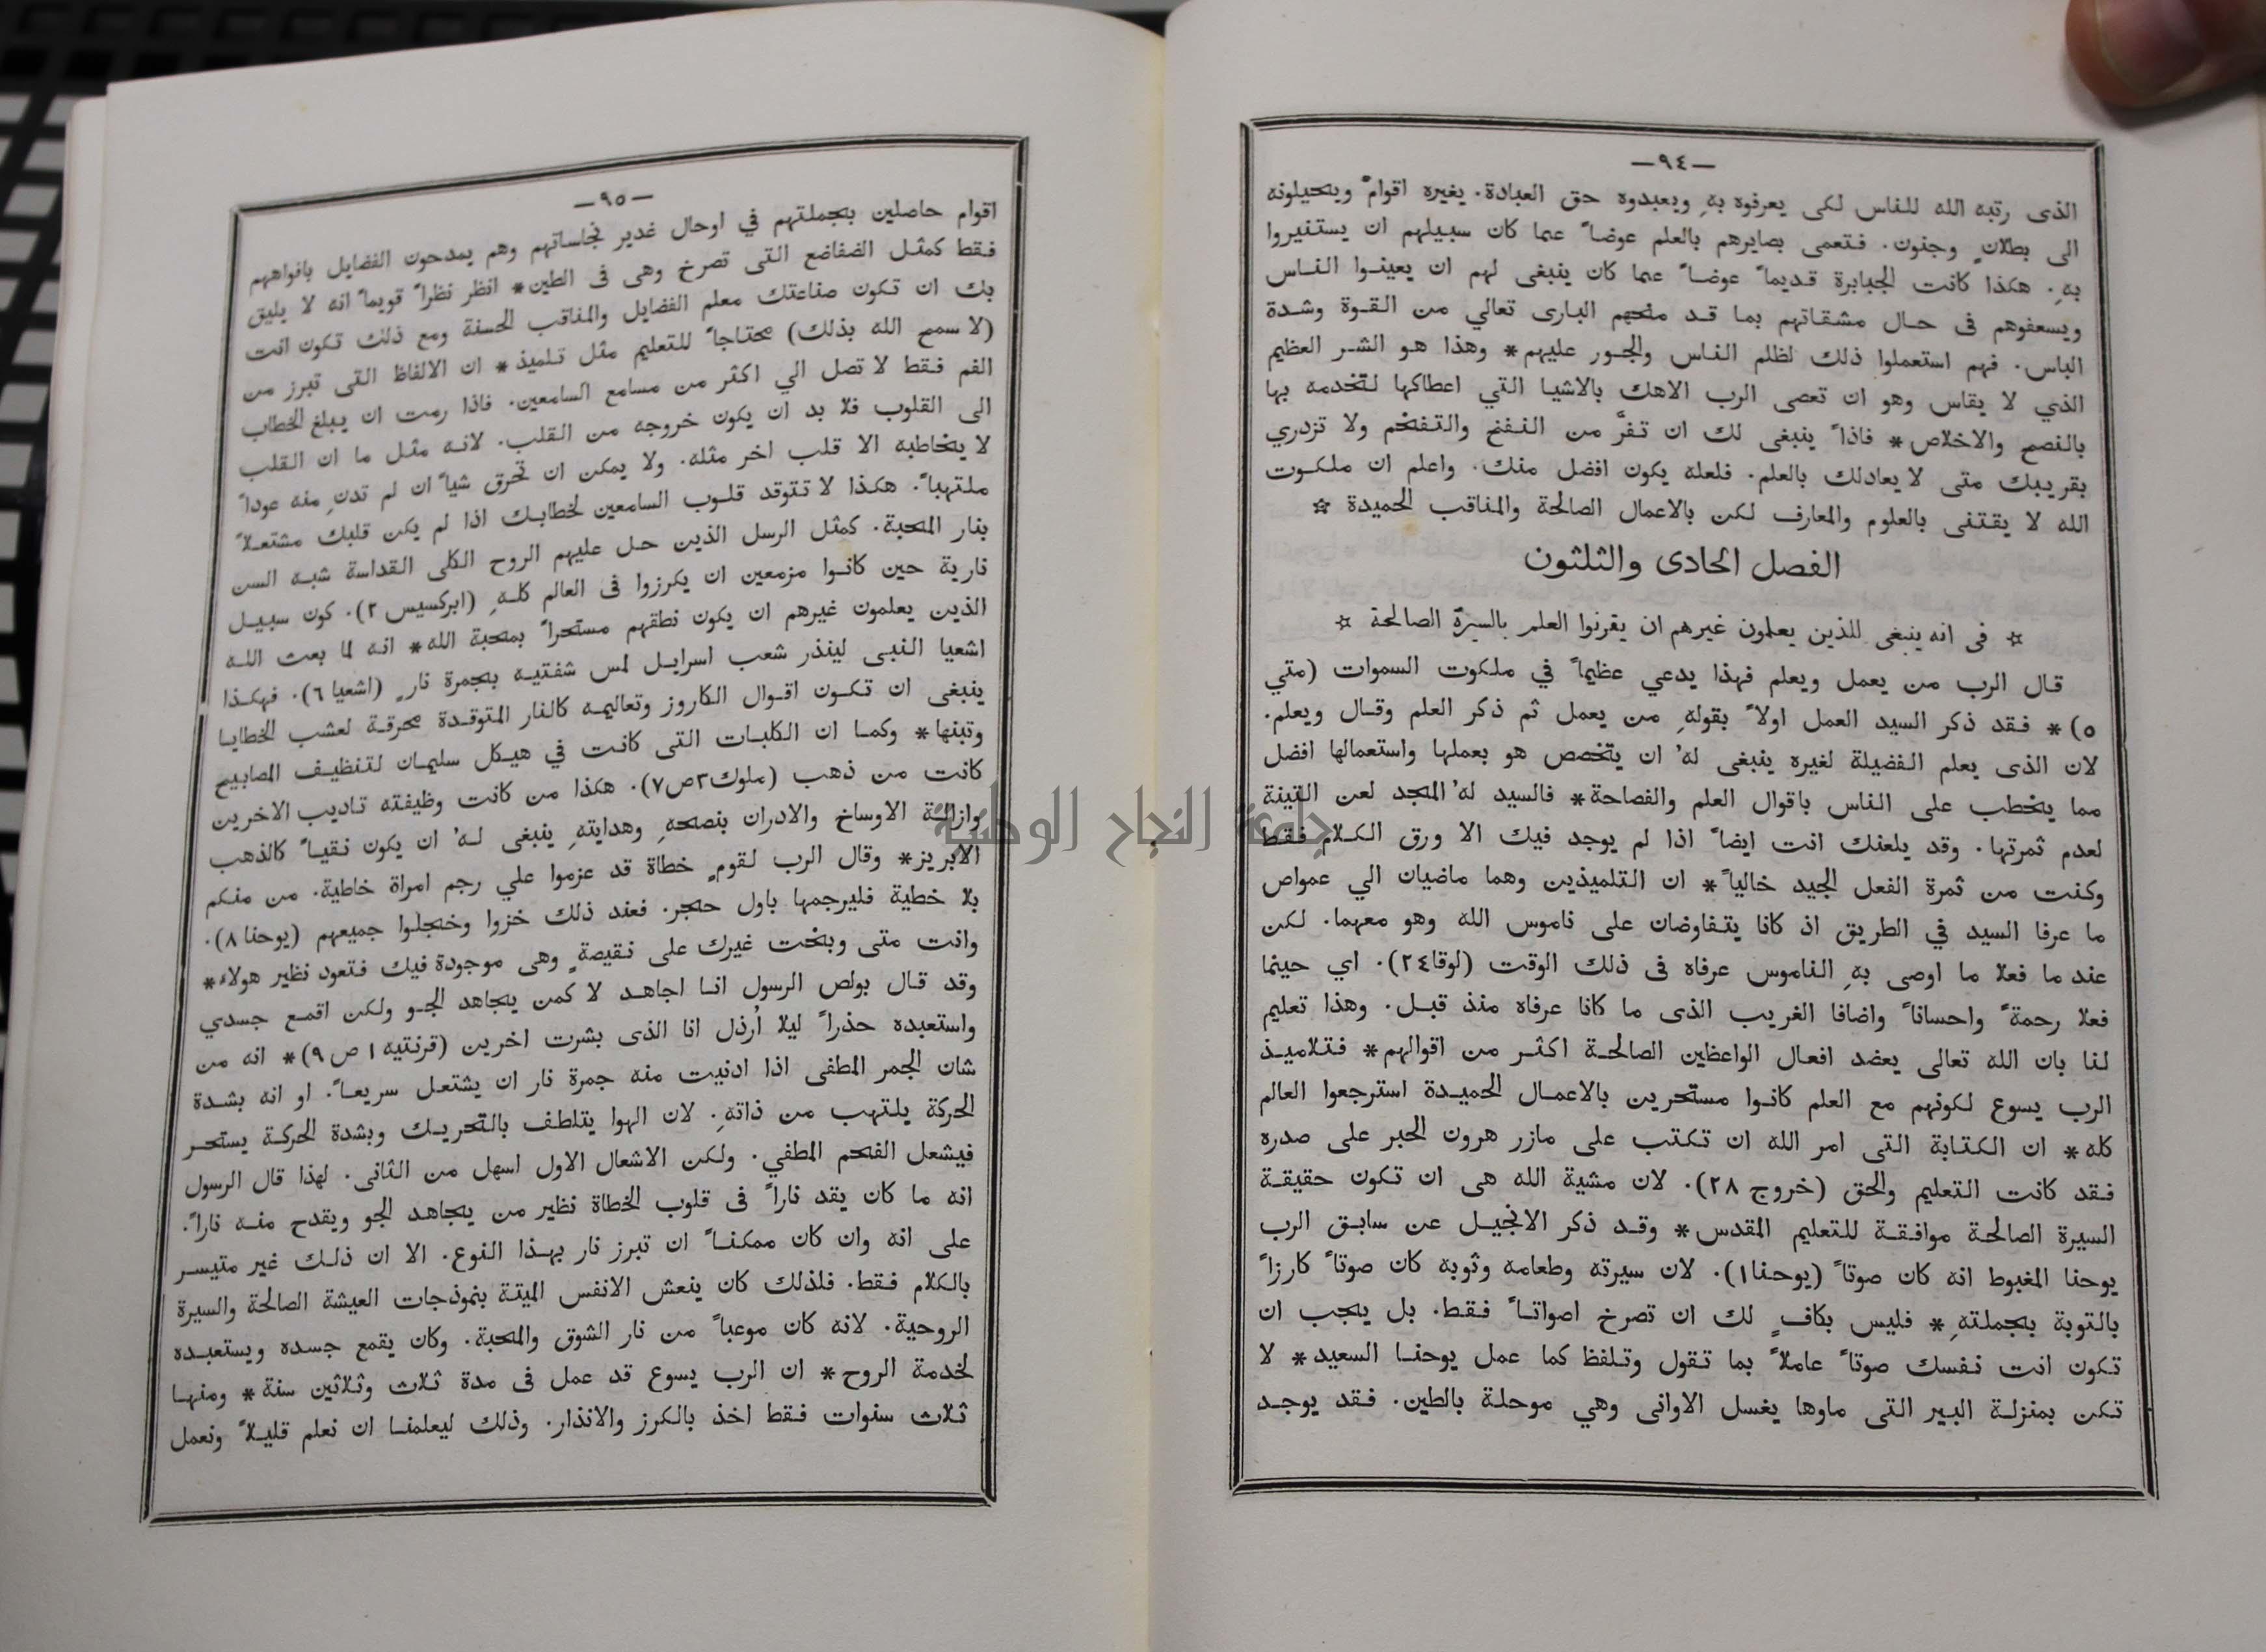 —٩٤—
الذى رتبه الله للناس لكى يعرفوه بهِ ويعبدوه حق العبادة. يغيره اقوامٌ ويتحيلونه
الى بطلانٍ وجنون. فتعمى بصايرهم بالعلم عوضاً عما كان سبيلهم ان يستنيروا
بهِ. هكذا كانت الجبابرة قديماً عوضاً عما كان ينبغى لهم ان يعينوا الناس
ويسعفوهم فى حال مشقاتهم بما قد منحهم البارى تعالي من القوة وشدة
الباس. فهم استعملوا ذلك لظلم الناس والجور عليهم* وهذا هو الشر العظيم
الذي لا يقاس وهو ان تعصى الرب الاهك بالاشيا التي اعطاكها لتخدمه بها
بالنصح والاخلاص* فاذاً ينبغى لك ان تفرَّ من النفخ والتفخم ولا تزدري
بقريبك متى لا يعادلك بالعلم. فلعله يكون افضل منك. واعلم ان ملكوت
الله لا يقتنى بالعلوم والمعارف لكن بالاعمال الصالحة والمناقب الحميدة ☆
الفصل الحادى والثلثون
☆ فى انه ينبغى للذين يعلمون غيرهم ان يقرنوا العلم بالسيرّة الصالحة ☆
قال الرب من يعمل ويعلم فهذا يدعي عظيماً في ملكوت السموات (متي
٥)* فقد ذكر السيد العمل اولاً بقولهِ من يعمل ثم ذكر العلم وقال ويعلم.
لان الذى يعلم الفضيلة لغيره ينبغى لهُ ان يتخصص هو بعملها واستعمالها افضل
مما يخطب على الناس باقوال العلم والفصاحة* فالسيد لهُ المجد لعن التينة
لعدم ثمرتها. وقد يلعنك انت ايضاً اذا لم يوجد فيك الا ورق الكلام فقط
وكنت من ثمرة الفعل الجيد خالياً* ان التلميذين وهما ماضيان الي عمواص
ما عرفا السيد في الطريق اذ كانا يتفاوضان على ناموس الله وهو معهما. لكن
عند ما فعلا ما اوصى بهِ الناموس عرفاه فى ذلك الوقت (لوقا٢٤). اي حينما
فعلا رحمةً واحساناً واضافا الغريب الذى ما كانا عرفاه منذ قبل. وهذا تعليم
لنا بان الله تعالى يعضد افعال الواعظين الصالحة اكثر من اقوالهم* فتلاميذ
الرب يسوع لكونهم مع العلم كانوا مستحرين بالاعمال الحميدة استرجعوا العالم
كله* ان الكتابة التى امر الله ان تكتب على مازر هرون الحبر على صدره
فقد كانت التعليم والحق (خروج ٢٨). لان مشية الله هى ان تكون حقيقة
السيرة الصالحة موافقة للتعليم المقدس* وقد ذكر الانجيل عن سابق الرب
يوحنا المغبوط انه كان صوتاً (يوحنا١). لان سيرته وطعامه وثوبه كان صوتاً كارزاً
بالتوبة بجملتهِ* فليس بكافٍ لك ان تصرخ اصواتاً فقط. بل يجب ان
تكون انت نفسك صوتاً عاملاً بما تقول وتلفظ كما عمل يوحنا السعيد* لا
تكن بمنزلة البير التى ماوها يغسل الاوانى وهي موحلة بالطين. فقد يوجد
—٩٥—
اقوام حاصلين بجملتهم في اوحال غدير نجاساتهم وهم يمدحون الفضايل بافواههم
فقط كمثل الضفاضع التى تصرخ وهى فى الطين* انظر نظراً قويماً انه لا يليق
بك ان تكون صناعتك معلم الفضايل والمناقب الحسنة ومع ذلك تكون انت
(لا سمح الله بذلك) محتاجاً للتعليم مثل تلميذ* ان الالفاظ التى تبرز من
الفم فقط لا تصل الي اكثر من مسامع السامعين. فاذا رمت ان يبلغ الخطاب
الى القلوب فلا بد ان يكون خروجه من القلب. لانه مثل ما ان القلب
لا يخاطبه الا قلب اخر مثله. ولا يمكن ان تحرق شياً ان لم تدنِ منه عوداً
ملتهباً. هكذا لا تتوقد قلوب السامعين لخطابك اذا لم يكن قلبك مشتعلاً
بنار المحبة. كمثل الرسل الذين حل عليهم الروح الكلى القداسة شبه السن
نارية حين كانوا مزمعين ان يكرزوا فى العالم كلهِ (ابركسيس ٢). كون سبيل
الذين يعلمون غيرهم ان يكون نطقهم مستحراً بمحبة الله* انه لما بعث الله
اشعيا النبى لينذر شعب اسرايل لمس شفتيه بجمرة نارٍ (اشعيا ٦). فهكذا
ينبغى ان تكون اقوال الكاروز وتعاليمه كالنار المتوقدة محرقة لعشب الخطايا
وتبنها* وكما ان الكلبات التى كانت في هيكل سليمان لتنظيف المصابيح
كانت من ذهب (ملوك٣ص٧). هكذا من كانت وظيفته تاديب الاخرين
وازالة الاوساخ والادران بنصحهِ وهدايتهِ ينبغى لهُ ان يكون نقياً كالذهب
الابريز* وقال الرب لقومٍ خطاة قد عزموا علي رجم امراة خاطية. من منكم
بلا خطية فليرجمها باول حجر. فعند ذلك خزوا وخجلوا جميعهم (يوحنا ٨).
وانت متى وبخت غيرك على نقيصةٍ وهى موجودة فيك فتعود نظير هولاء*
وقد قال بولص الرسول انا اجاهد لا كمن يجاهد الجو ولكن اقمع جسدي
واستعبده حذراً ليلا اُرذل انا الذى بشرت اخرين (قرنتيه ١ ص ٩)* انه من
شان الجمر المطفى اذا ادنيت منه جمرة نار ان يشتعل سريعاً. او انه بشدة
الحركة يلتهب من ذاتهِ. لان الهوا يتلطف بالتحريك وبشدة الحركة يستحر
فيشعل الفحم المطفي. ولكن الاشعال الاول اسهل من الثانى. لهذا قال الرسول
انه ما كان يقد ناراً فى قلوب الخطاة نظير من يجاهد الجو ويقدح منه ناراً.
على انه وان كان ممكناً ان تبرز نار بهذا النوع. الا ان ذلك غير متيسر
بالكلام فقط. فلذلك كان ينعش الانفس الميتة بنموذجات العيشة الصالحة والسيرة
الروحية. لانه كان موعباً من نار الشوق والمحبة. وكان يقمع جسده ويستعبده
لخدمة الروح* ان الرب يسوع قد عمل فى مدة ثلاث وثلاثين سنة* ومنها
ثلاث سنوات فقط اخذ بالكرز والانذار. وذلك ليعلمنا ان نعلم قليلاً ونعمل
جامعة النجاح الوطنية